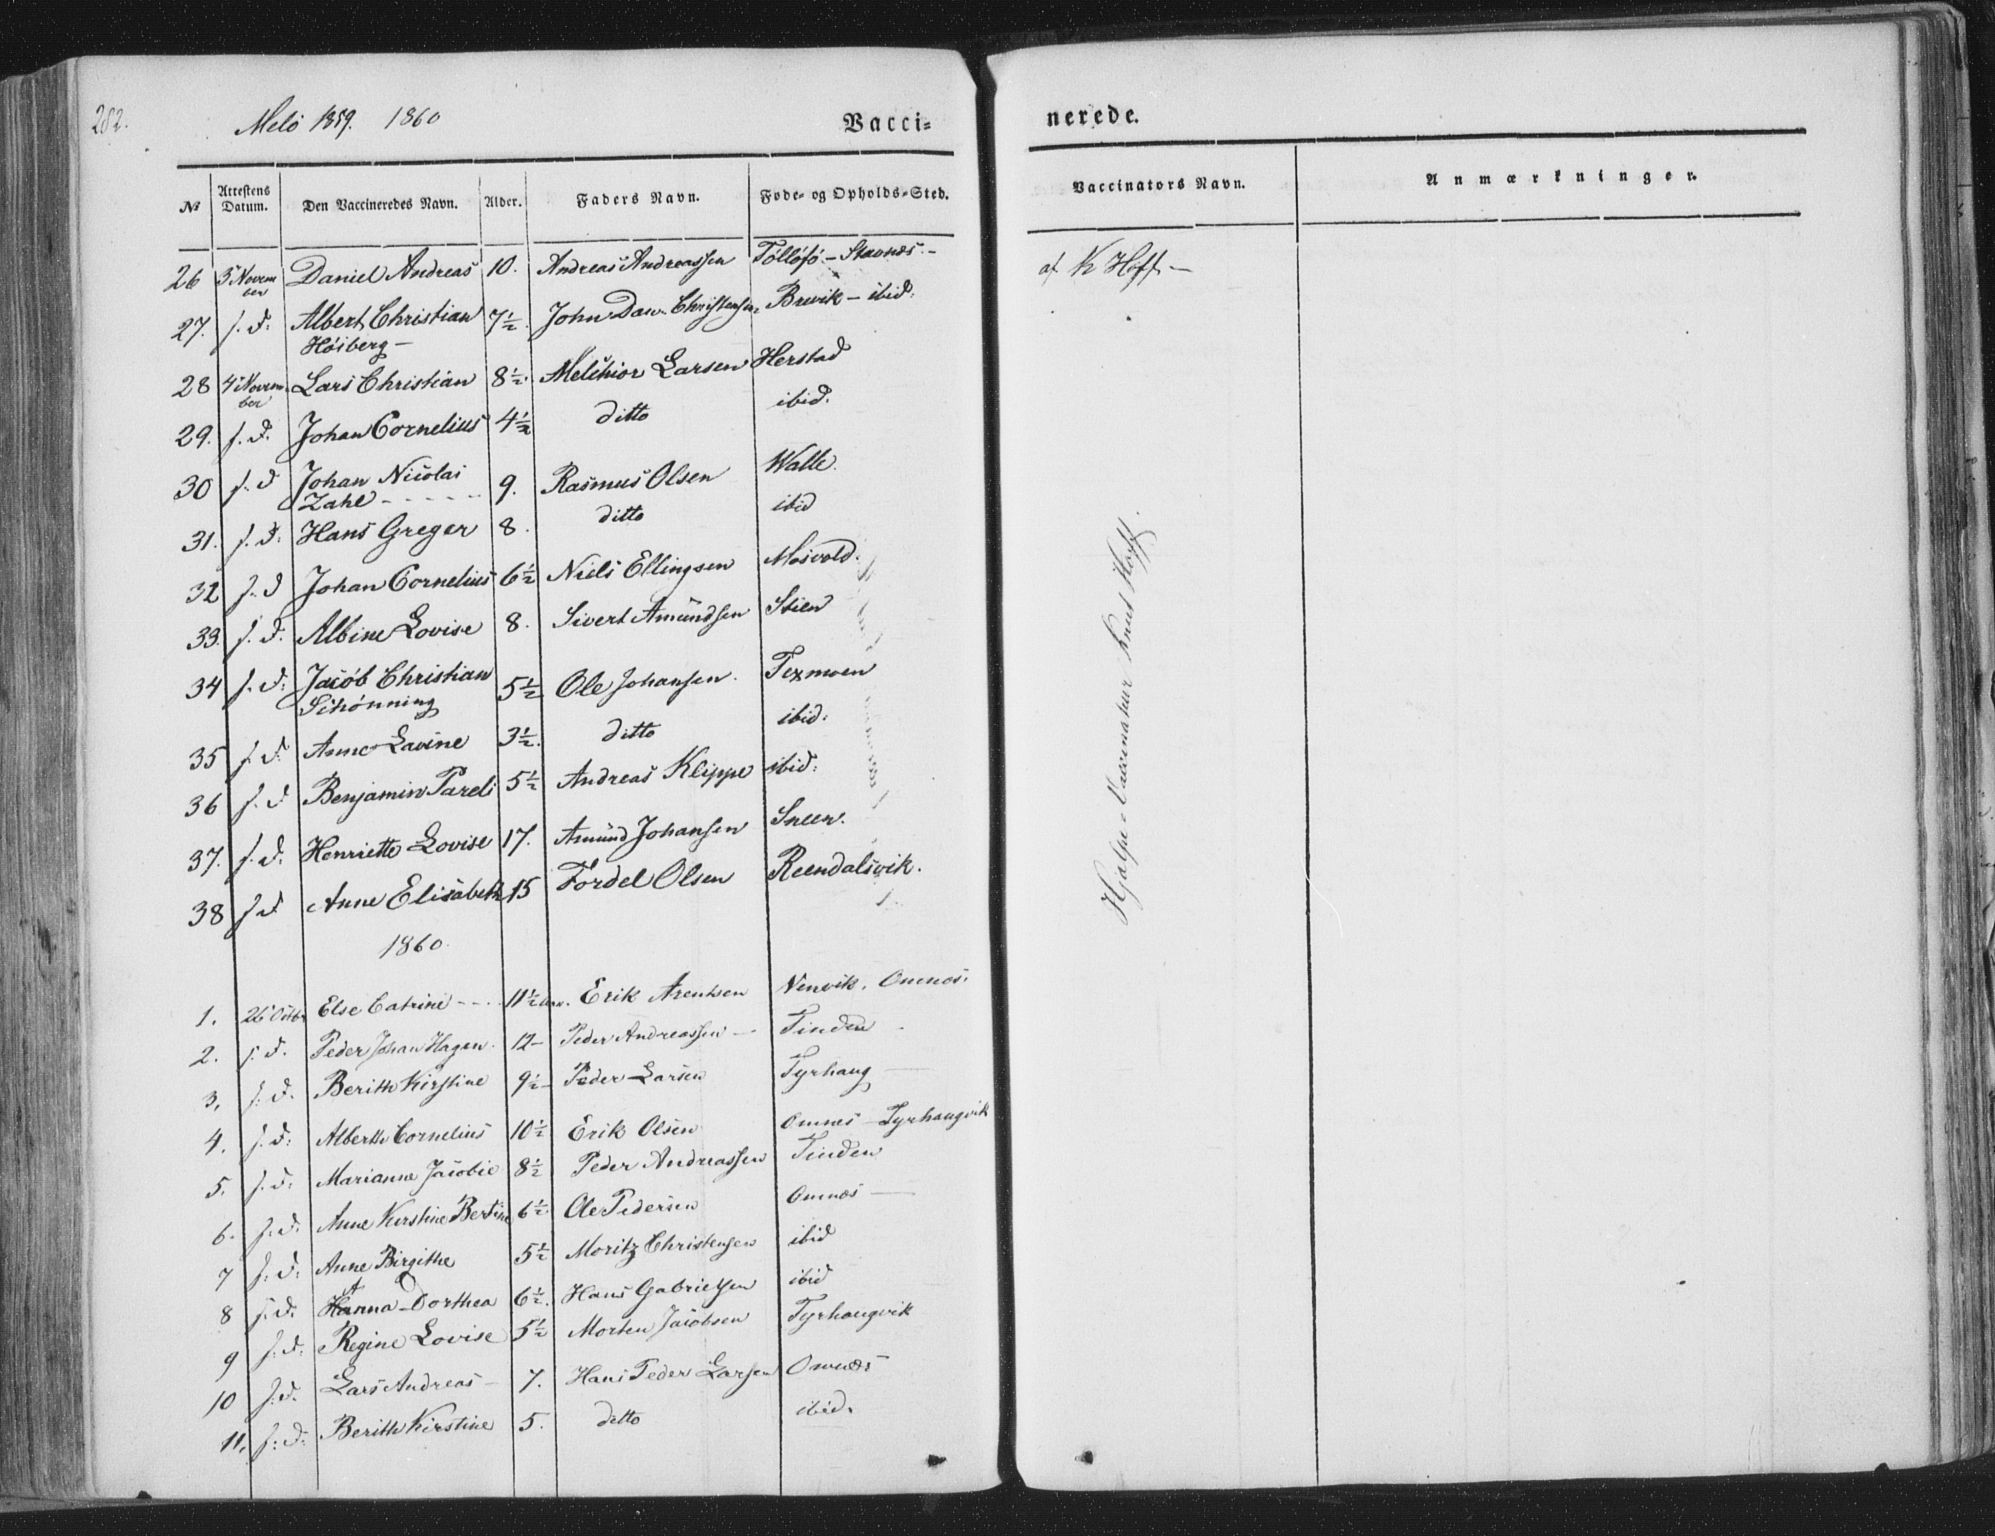 282.
Melö 1859. 1860
Vacci=
nerede.
№ Attestens Datum. Den Vaccineredes Navn. Alder. Faders Navn. Føde- og Opholds-Sted.
Vaccinators Navn. Anmærkninger.
26 3 Novem ber Daniel Andreas 10. Andreas Andreassen Tölløfö - Stavnes -
af K Hoff -
27. s. d: Albert Christian 7½ John Dan. Christensen Brevik - ibid:
Höiberg -
28 4 Novem ber Lars Christian 8½. Melchior Larsen Herstad
29. s. d. Johan Cornelius 4½ ditto ibid.
30 s. d Johan Nicolai 9. Rasmus Olsen Walle.
Zahl - - - - -
31. s. d. Hans Greger 8. ditto ibid
32 s. d Johan Cornelius 6½ Niels Ellingsen Mosvold.
33. s. d. Albine Lovise 8. Sivert Amundsen Stien
34 s. d: Jacob Christian 5½ Ole Johansen. Texmoen
Schönning
35 s. d: Anne Lavine 3½. ditto ibid:
36 s. d Benjamin Pareli 5½ Andreas Klippe ibid:
37. s. d. Henriette Lovise 17. Amund Johansen Sneen.
38 s d Anne Elisabeth 15 Tordel Olsen Reendalsvik.
1860.
1. 26 Octbr Else Catrine - - 11½ Erik Arentsen Nenvik. Omnes.
2. s. d. Peder Johan Hagen. 12- Peder Andreassen - Tinden
3. s: d. Berith Kirstine 9½- Peder Larsen Tyrhaug
4. s. d: Alberth Cornelius 10½ Erik Olsen Omnes - Tyrhaugvik
5. s. d: Marianne Jacobie 8½ Peder Andreassen Tinden
6. s. d: Anne Kirstine Bertine 6½ Ole Pedersen Omnes
7 s. d: Anne Birgithe 5½ Moritz Christensen ibid
8 s. d. Hanna Dorthea 6½. Hans Gabrielsen ibid
9 s. d: Regine Lovise 5½ Morten Jacobsen Tyrhaugvik
10 s. d. Lars Andreas - 7. Hans Peder Larsen Omnes
11. s: d: Berith Kirstine 5. ditto ibid.
Hjælpe-Vaccinatur Knut Hoff.